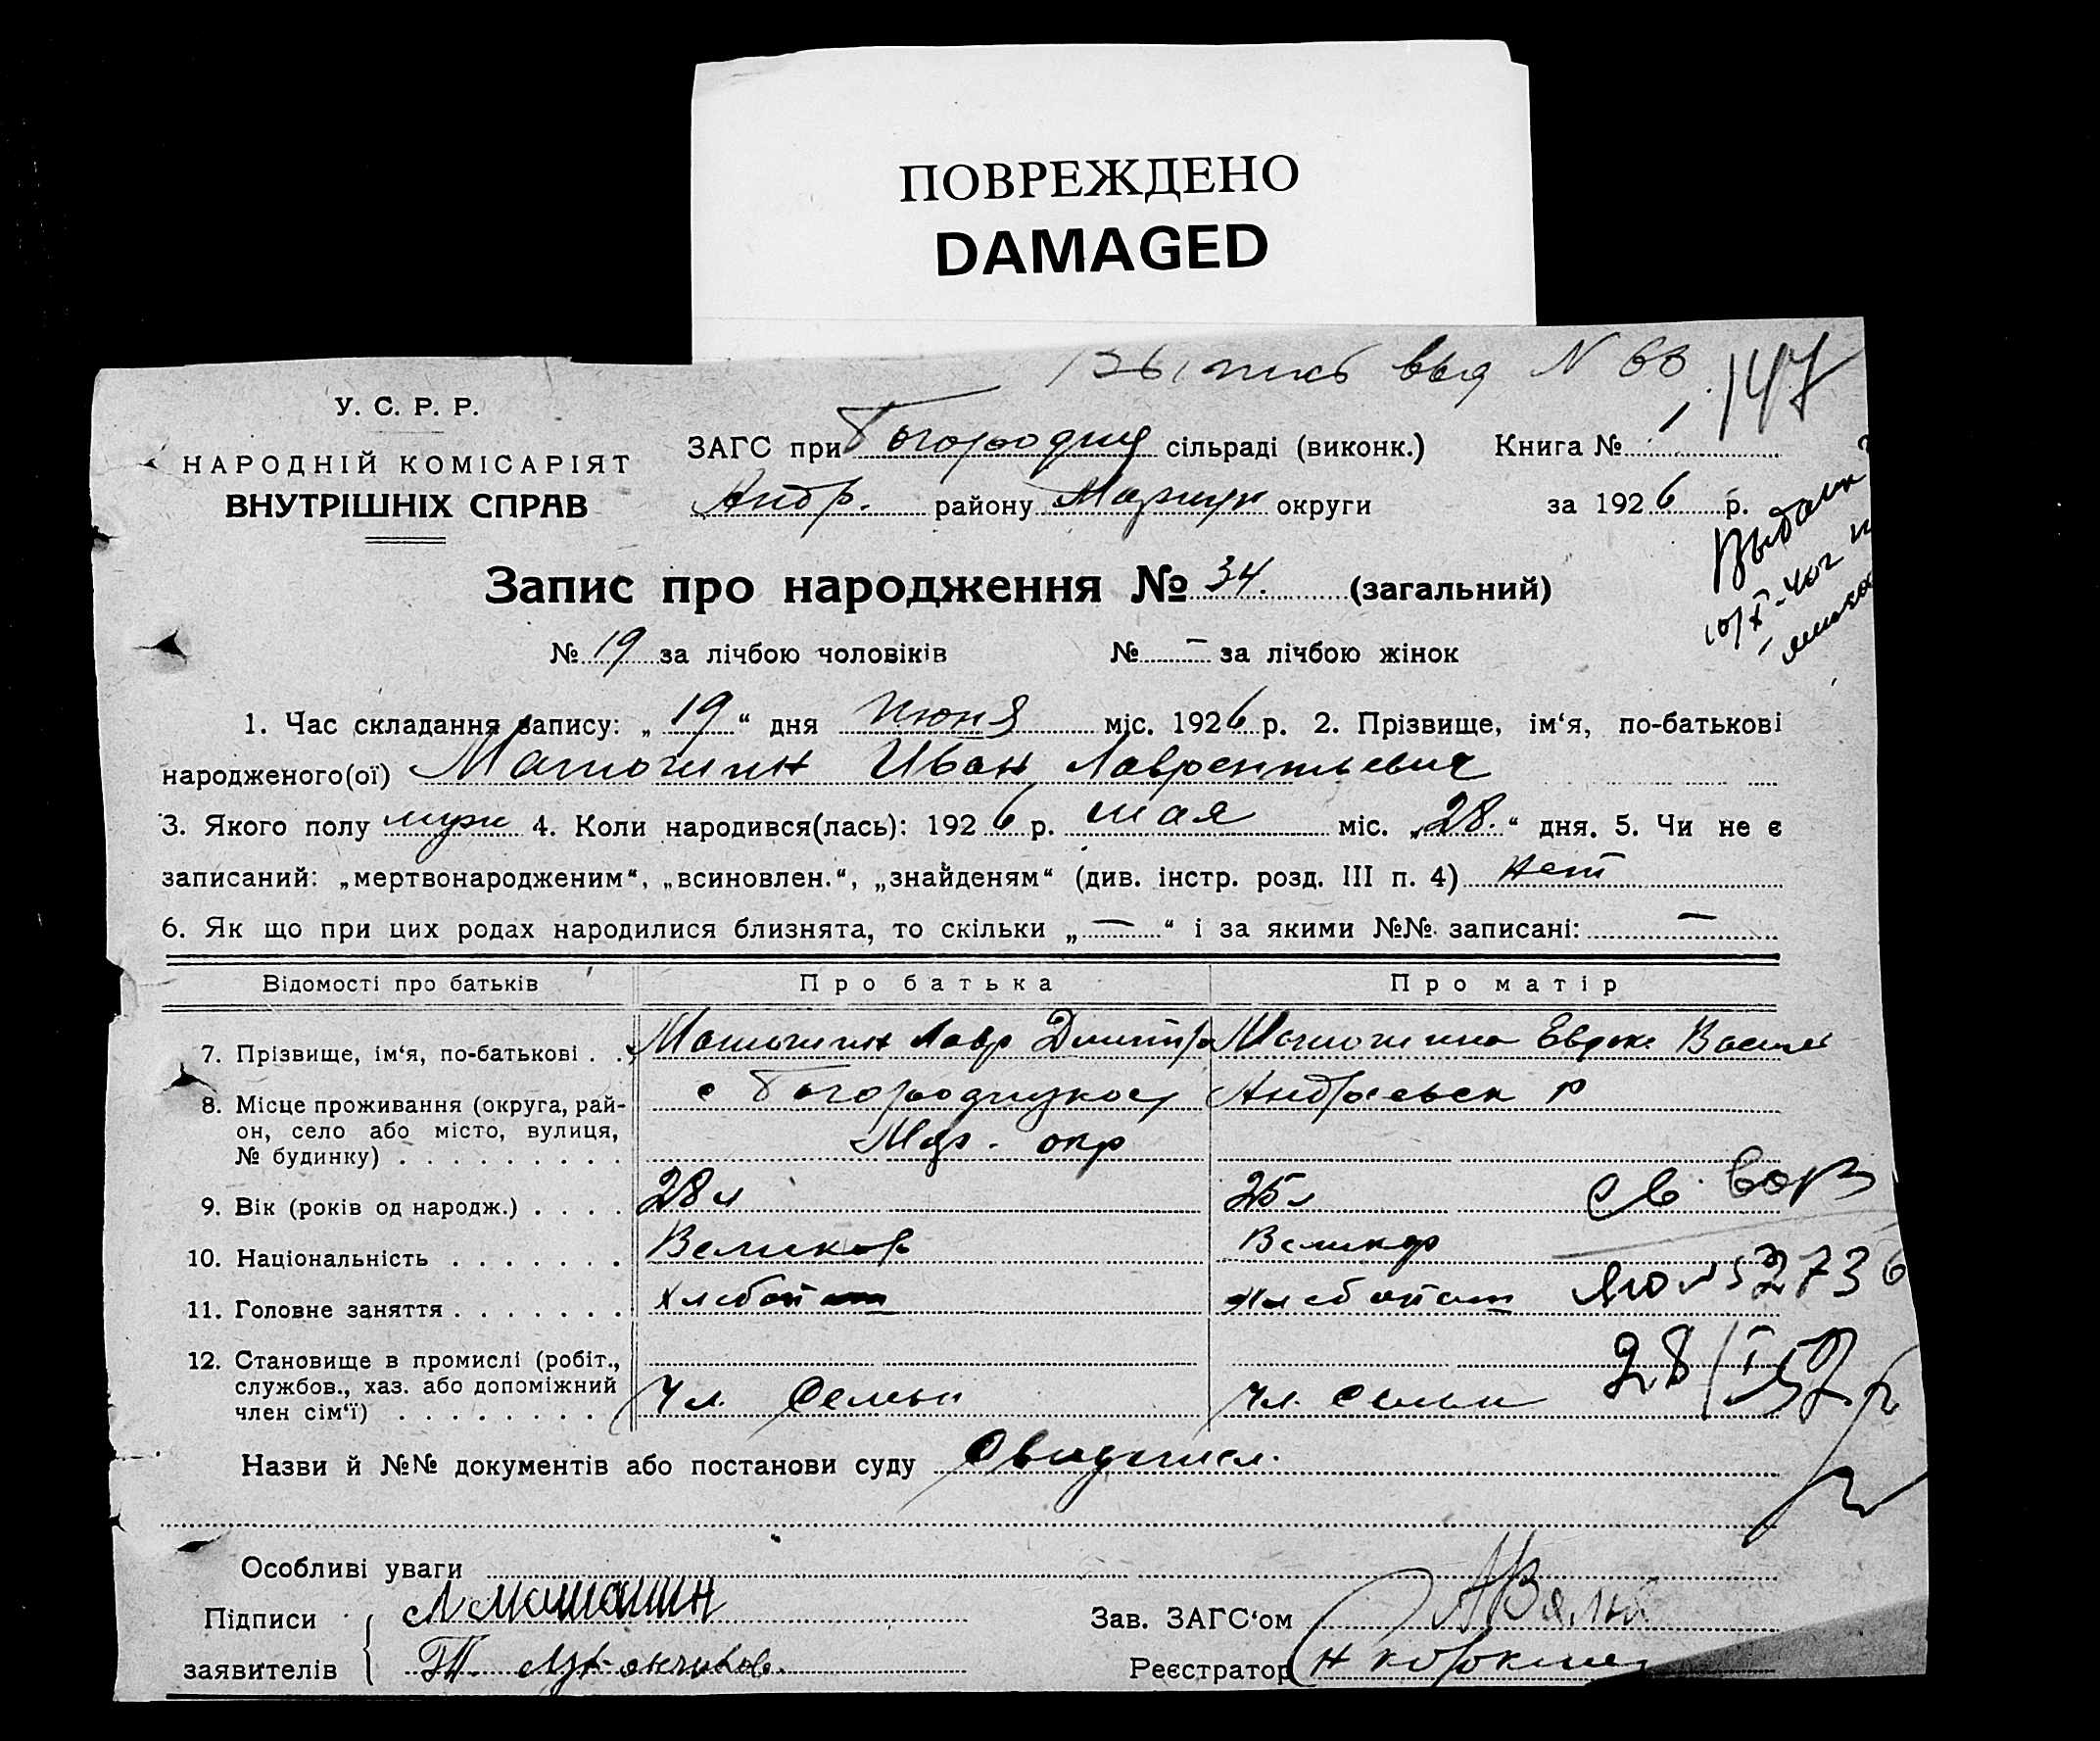 ПОВРЕЖДЕНО
DAMAGED
выд N 68
147
У. С. Р. Р.
НАРОДНІЙ КОМІСАРІЯТ
ВНУТРІШНІХ СПРАВ
ЗАГС при Богородиц сільраді (виконк.) Книга № 1
Андр. району округи за 1926 р.
Запис про народження № 34. (загальний)
№ 19 за лічбою чоловіків № — за лічбою жінок
1. Час складання запису: „19“ дня июня міс. 1926 р. 2. Прізвище, ім‘я, по-батькові
народженого(ої) Матюшин Иван Лаврентьевич
3. Якого полу муж 4. Коли народився(лась): 1926 р. мая міс. „28.“ дня. 5. Чи не є
записаний: „мертвонародженим“, „всиновлен.“, „знайденям“ (див. інстр. розд. III п. 4) нет
6. Як що при цих родах народилися близнята, то скільки „—“ і за якими №№ записані: —
Відомості про батьків Про батька Про матір
7. Прізвище, ім‘я, по-батькові . . Матюшин Лавр Дмитр Матюшина Васил
8. Місце проживання (округа, рай-
он, село або місто, вулиця,
№ будинку) . . . . . . . . .
с Богородицкое Андреевск р
Мар. окр
9. Вік (років од народж.) . . . . 28 л 25 л
10. Національність . . . . . . . Великор Великор
11. Головне заняття . . . . . . . Хлебопаш хлебопаш
12. Становище в промислі (робіт.,
службов., хаз. або допоміжний
член сім‘ї) . . . . . . . .
Чл. Семьи чл. семьи
Назви й №№ документів або постанови суду
Особливі уваги
Підписи Л Матюшин Зав. ЗАГС‘ом
заявителів Реєстратор Н